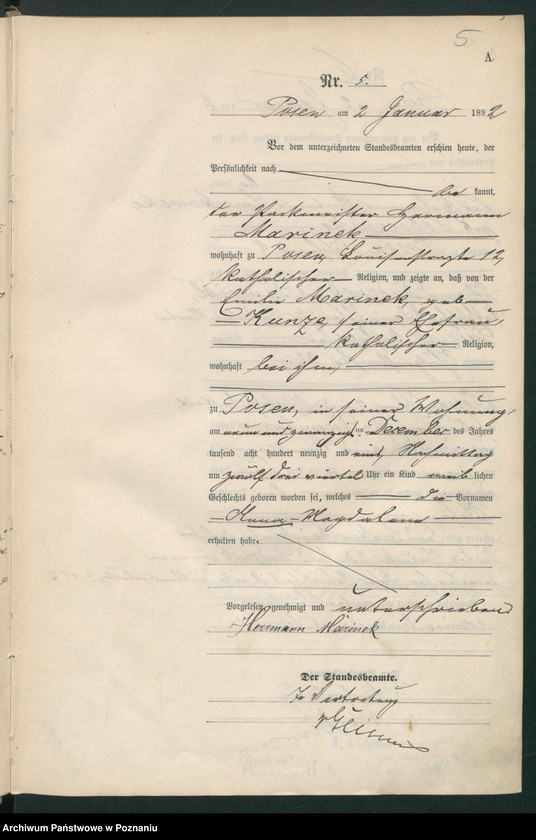 5
A.
Nr. 5.
Posen am 2 Januar 1892
Vor dem unterzeichneten Standesbeamten erschien heute, der
Persönlichkeit nach
be kannt,
der Packmeister Hermann
Marinek
wohnhaft zu Posen, Louisenstraße 12,
katholischer Religion, und zeigte an, daß von der
Emilie Marinek, geb.
Kunze, seiner Ehefrau,
katholischer Religion,
wohnhaft bei ihm,
zu Posen, in seiner Wohnung,
am neunundzwanzigsten December des Jahres
tausend acht hundert neunzig und eins, Nachmittag
um zwölf drei viertel Uhr ein Kind weib lichen
Geschlechts geboren worden sei, welches die Vornamen
Magdalena
erhalten habe.
Vorgelesen, genehmigt und unterschrieben
Herrmann Marinek
Der Standesbeamte.
In Vertretung
Archiwum Państwowe w Poznaniu